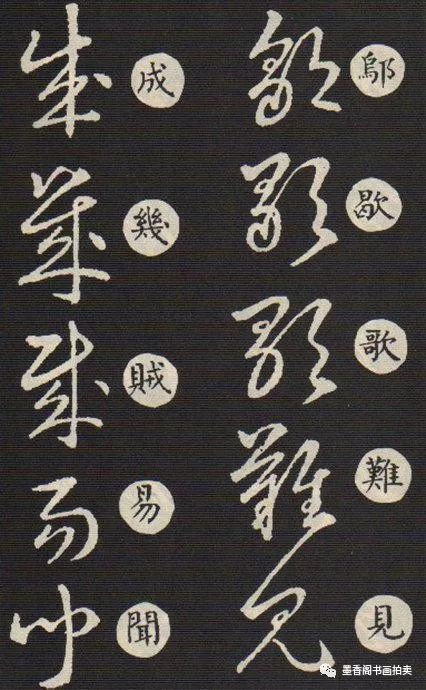 鄔歇歌難見
成幾賊易聞
墨香阁书画拍卖